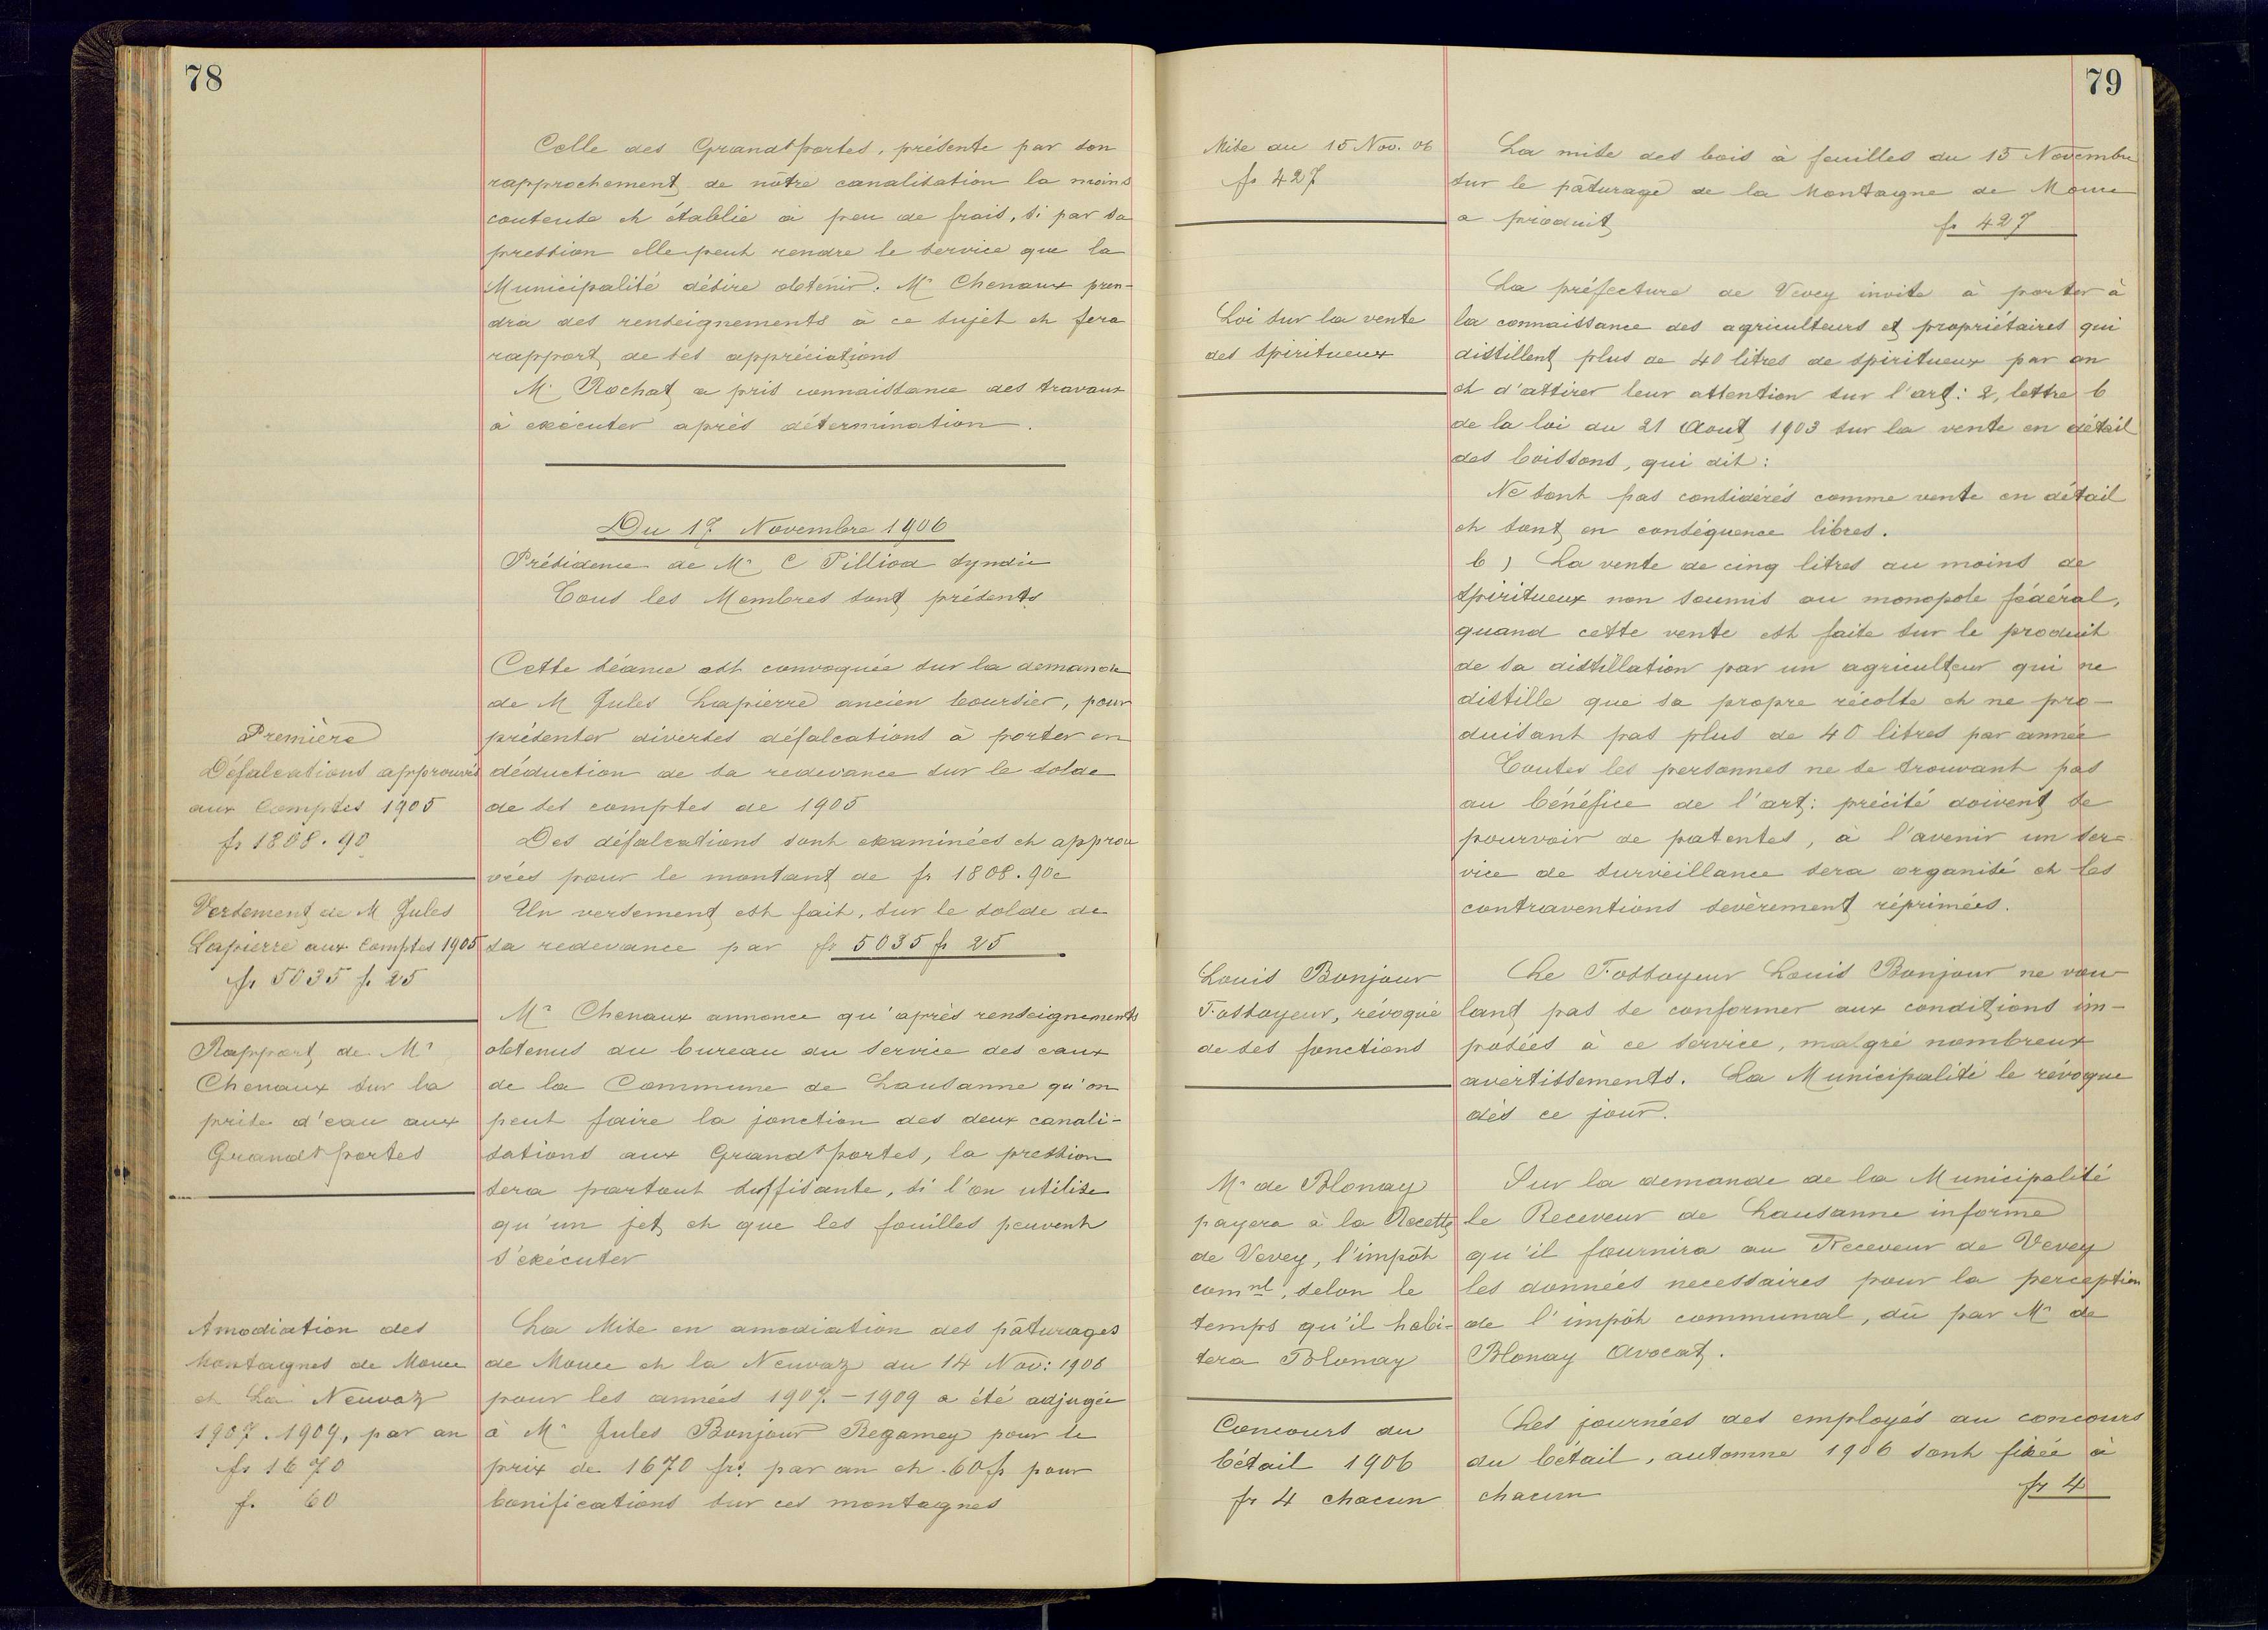 78
Celle des Grands portes, présente par son
rapprochement de nôtre canalisation la moins
couteuse et établie à peu de frais, si par sa
pression elle peut rendre le service que la
Municipalité désire obtenir. Mr Chenaux pren-
dra des renseignements à ce sujet et fera
rapport de ses appréciations
Mr Rochat a pris connaissance des travaux
à exécuter après détermination.
Du 17 Novembre 1906
Présidence de Mr C Pilliod Syndic
Tous les Membres sont présents
Première
Défalcations approuvées
aux Comptes 1905
fr 1808.90
Cette séance est convoquée sur la demande
de M Jules Lapierre ancien boursier, pour
présenter diverses défalcations à porter en
déduction de sa redevance sur le solde
de ses comptes de 1905
Des défalcations sont examinées et approu
vées pour le montant de fr 1808.90c
Versement de M Jules
Lapierre aux Comptes 1905
fr 5035 fr 25
Un versement est fait, sur le solde de
sa redevance par fr 5035 fr 25
Rapport de Mr
Chenaux sur la
prise d'eau aux
Grands portes
Mr Chenaux annonce qu'après renseignements
obtenus du bureau du service des eaux
de la Commune de Lausanne qu'on
peut faire la jonction des deux canali-
sations aux Grands portes, la pression
sera partout suffisante, si l'on utilise
qu'un jet et que les fouilles peuvent
s'exécuter
Amodiation des
Montagnes de Mouce
et La Neuvaz
1907.1909, par an
fr 1670
fr 60
La Mise en amodiation des pâturages
de Mouce et la Neuvaz du 14 Nov: 1906
pour les années 1907.-1909 a été adjugée
à Mr Jules Bonjour Regamey pour le
prix de 1670 frs par an et 60 fr pour
bonifications sur ces montagnes
79
Mise du 15 Nov. 06
fr 427
La mise des bois à feuilles du 15 Novembre
sur le pâturage de la Montagne de Mouce
a produit fr 427
Loi sur la vente
des spiritueux
La préfecture de Vevey invite à porter à
la connaissance des agriculteurs et propriétaires qui
distillent plus de 40 litres de spiritueux par an
et d'attirer leur attention sur l'art: 2, lettre b
de la loi du 21 Aout 1903 sur la vente en détail
des boissons, qui dit:
Ne sont pas considérés comme vente en détail
et sont en conséquence libres.
b) La vente de cinq litres au moins de
spiritueux non soumis au monopole fédéral,
quand cette vente est faite sur le produit
de sa distillation par un agriculteur qui ne
distille que sa propre récolte et ne pro-
duisant pas plus de 40 litres par année
Toutes les personnes ne se trouvant pas
au bénéfice de l'art: précité doivent se
pourvoir de patentes, à l'avenir un ser=
vice de surveillance sera organisé et les
contraventions sévèrement réprimées.
Louis Bonjour
Fossoyeur, révoqué
de ses fonctions
Le Fossoyeur Louis Bonjour ne vou
lant pas se conformer aux conditions im-
posées à ce service, malgré nombreux
avertissements. La Municipalité le révoque
dès ce jour.
Mr de Blonay
payera à la Recette
de Vevey, l'impôt
comnl, selon le
temps qu'il habi-
tera Blonay
Sur la demande de la Municipalité
le Receveur de Lausanne informe
qu'il fournira au Receveur de Vevey
les données necessaires pour la perception
de l'impôt communal, dû par Mr de
Blonay Avocat.
Concours du
bétail 1906
fr 4 chacun
Les journées des employés au concours
du bétail, automne 1906 sont fixée à
chacun fr 4